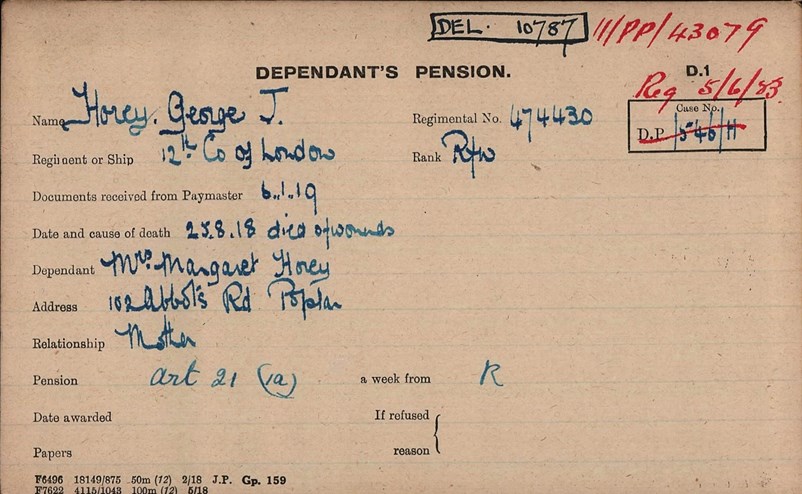 DEL. 10787 11/PP/43079
DEPENDANT'S PENSION. D.1
Reg 5/6/23.
Name Horey. George J. Regimental No. 474430 Case No.
D.P. 546/H
Regiment or Ship 12th Co of London Rank Rfn
Documents received from Paymaster 6.1.19
Date and cause of death 25.8.18 died of wounds
Dependant Mrs. Margaret Horey
Address 102 Abbots Rd Poplar
Relationship Mother
Pension art 21 (1a) a week from R
Date awarded If refused
Papers reason
F6496 18149/875 50m (12) 2/18 J.P. Gp. 159
F7622 4115/1043 100m (12) 5/18